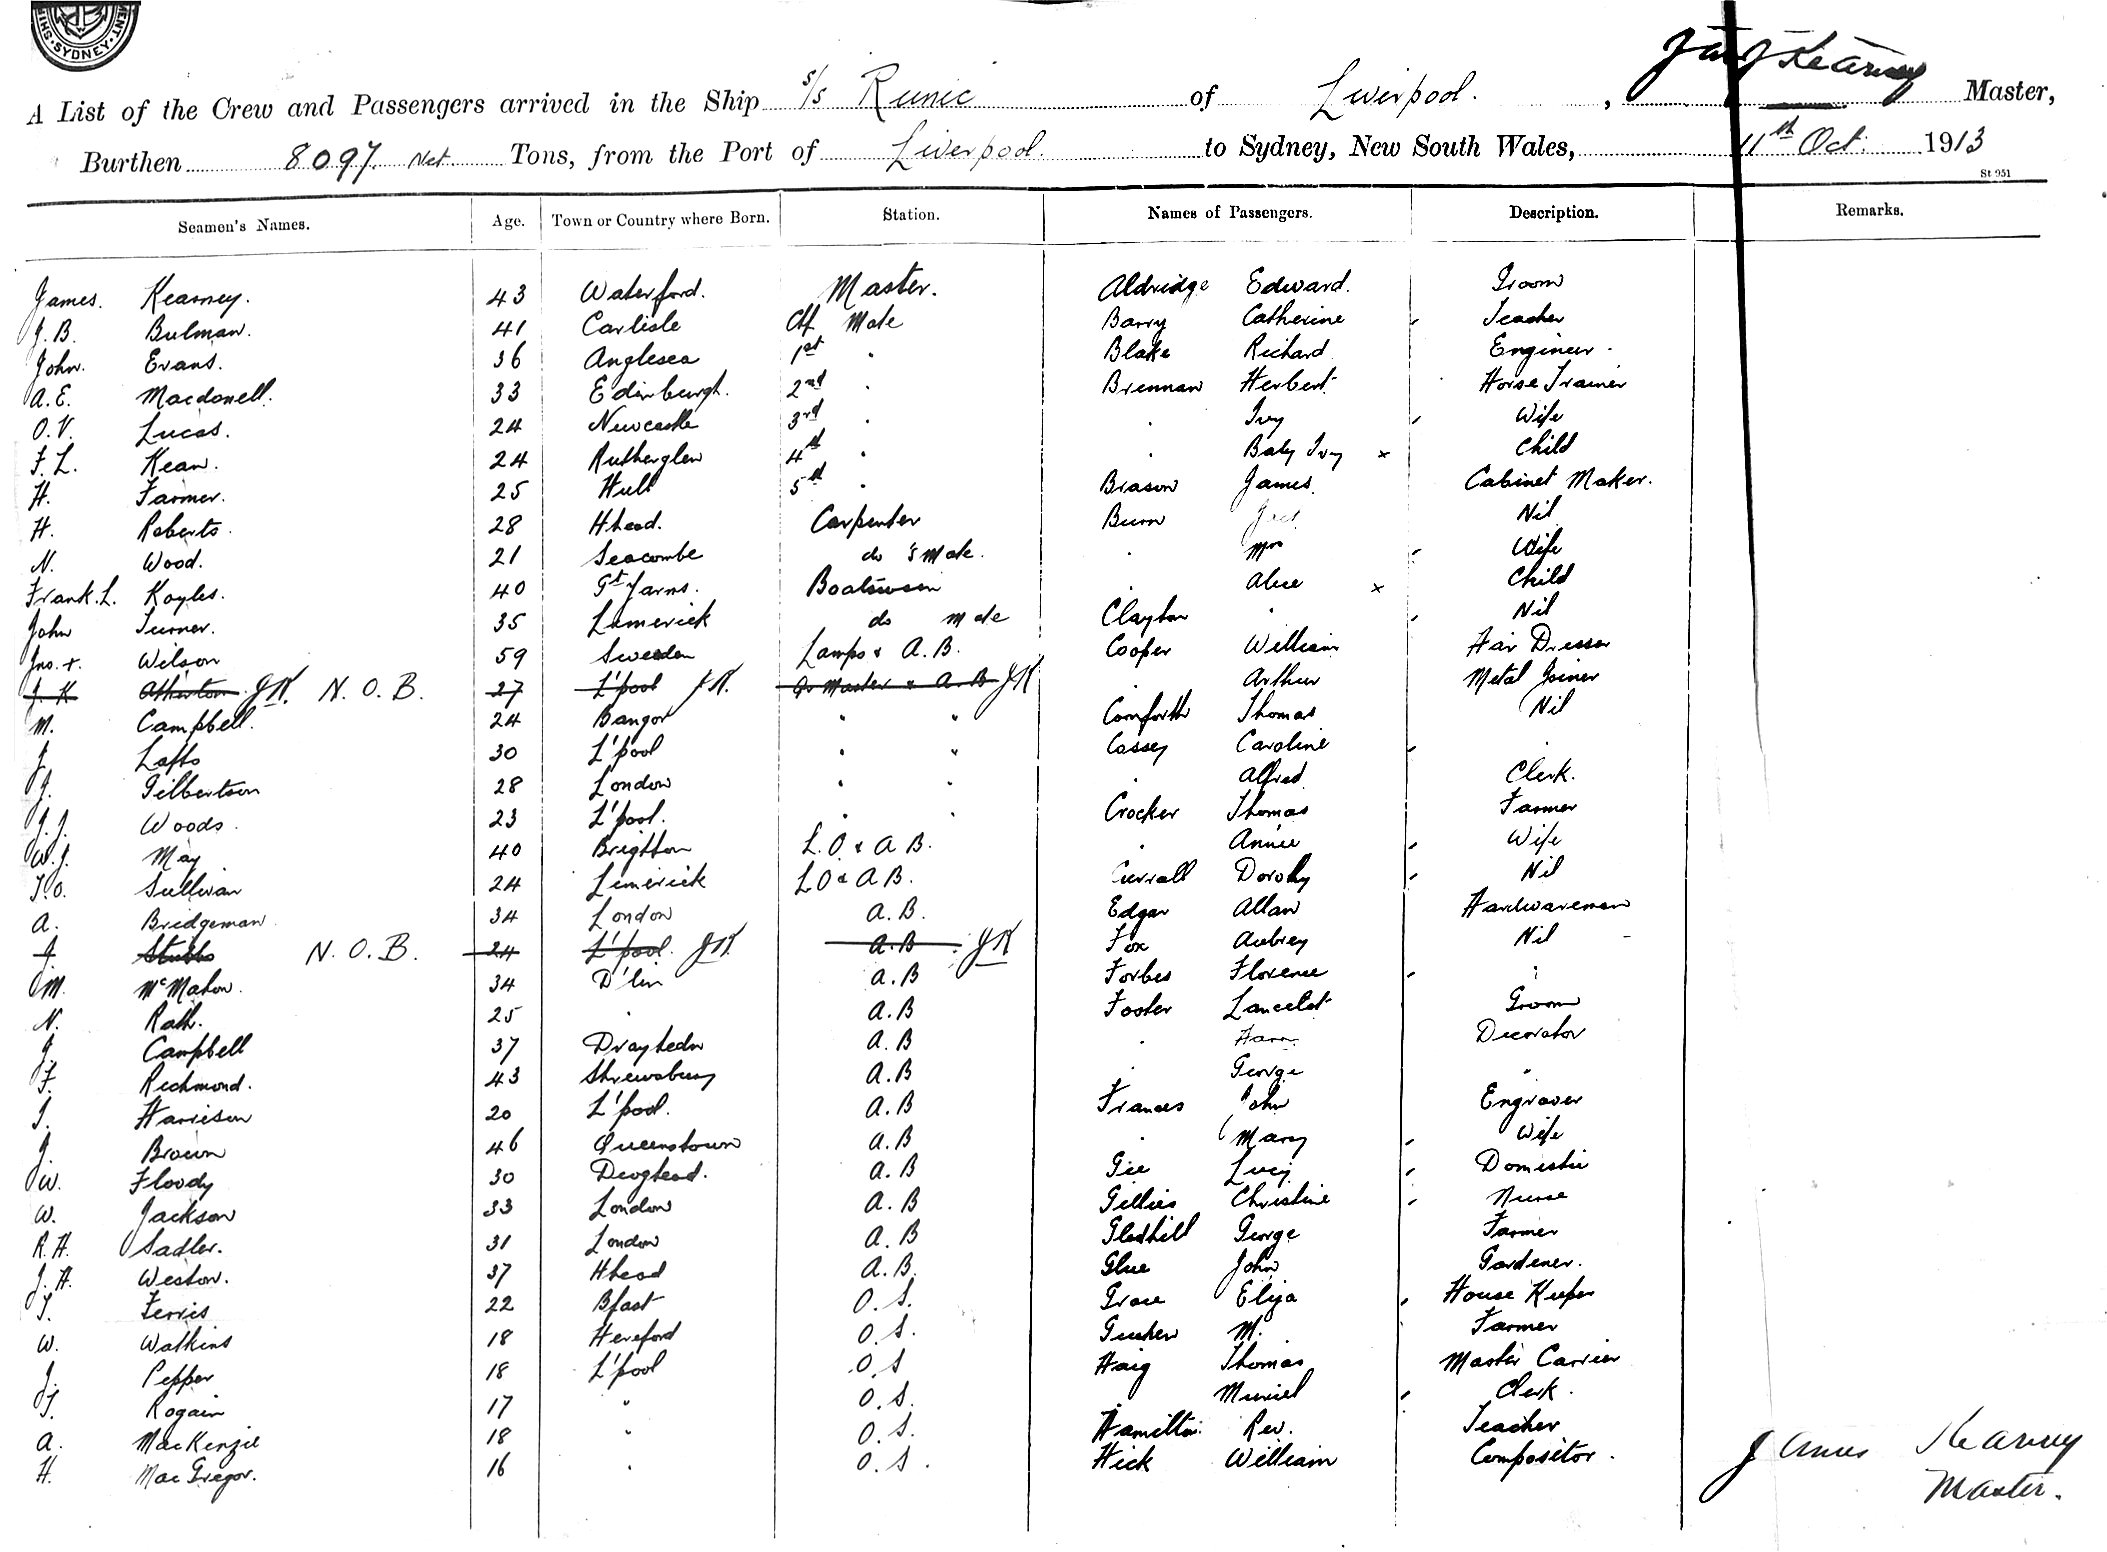 SYDNEY
A List of the Crew and Passengers arrived in the Ship s/s Runic of Liverpool. , Jas Kearney Master,
Burthen 8097. Net Tons, from the Port of Liverpool. to Sydney, New South Wales, 11th Oct. 1913
St 951
Seamen's Names. Age. Town or Country where Born. Station. Names of Passengers. Description. Remarks.
James. Kearney. 43 Waterford. Master. Aldridge Edward. Groom
J.B. Bulman. 41 Carlisle Chf Mate Barry Catherine Teacher
John. Evans. 36 Anglesea 1st " Blake Richard Engineer.
A.E. Macdonell. 33 Edinburgh. 2nd " Brennan Herbert Horse Trainer
O.V. Lucas. 24 Newcastle 3rd " " Ivy Wife
F.L. Kean. 24 Rutherglen 4th " " Baby Ivy x Child
H. Farmer. 25 Hull 5th " Brason James. Cabinet Maker.
H. Roberts. 28 Hhead. Carpenter Burn Nil
N. Wood. 21 Seacombe do 's Mate. " Mrs Wife
Frank.L. Koyles. 40 Gt Yarms. Boatswain " Alice x Child
John Turner. 35 Limerick do mate Clayton " Nil
Jno. Wilson 59 Sweden Lamps & A.B. Cooper William Hair Dresser
J K Atherton J.K. N.O.B. 27 L'pool J.K. Qr Master & A.B J.K " Arthur Metal Joiner
M. Campbell. 24 Bangor " " Cornforth Thomas Nil
J. Lofts 30 L'pool " " Cossey Caroline "
J. Gilbertson 28 London " " " Alfred. Clerk.
J.J. Woods. 23 L'pool. " " Crocker Thomas Farmer
W.J. May 40 Brighton L.O. & A B. " Annie Wife
T.O. Sullivan 24 Limerick L O & A B. Currall Dorothy Nil
A. Bridgeman 34 London A.B. Edgar Allan Hardwareman
J. Stubbs N.O.B. 24 L'pool. J.K. A.B J.K Fox Aubrey Nil
M. McMahon. 34 D'lin A.B Forbes Florence "
N. Rath. 25 " A.B Foster Lancelot Groom
J. Campbell 37 A.B " Decorator
F. Richmond. 43 Shrewsbury A.B " George "
J. Harrison 20 L'pool. A.B Frances John Engraver
J. Brown 46 Queenstown A.B " Mary Wife
W. Floody 30 A.B Gee Lucy Domestic
W. Jackson 33 London A.B Gillies Christine Nurse
R.H. Sadler. 31 London A.B Gledhill George Farmer
J.H. Weston. 37 Hhead A.B. Glue John Gardener.
T. Ferris 22 Bfast O.S. Grace Eliza House Keeper
W. Watkins 18 Hereford O.S. M. Farmer
J. Pepper 18 L'pool O.S Haig Thomas Master Carrier
J. Rogain 17 " O.S. " Muriel Clerk.
A. MacKenzie 18 " O.S. Hamilton Rev. Teacher
H. MacGregor. 16 " O.S. Hick William Compositor.
James Kearney
Master.